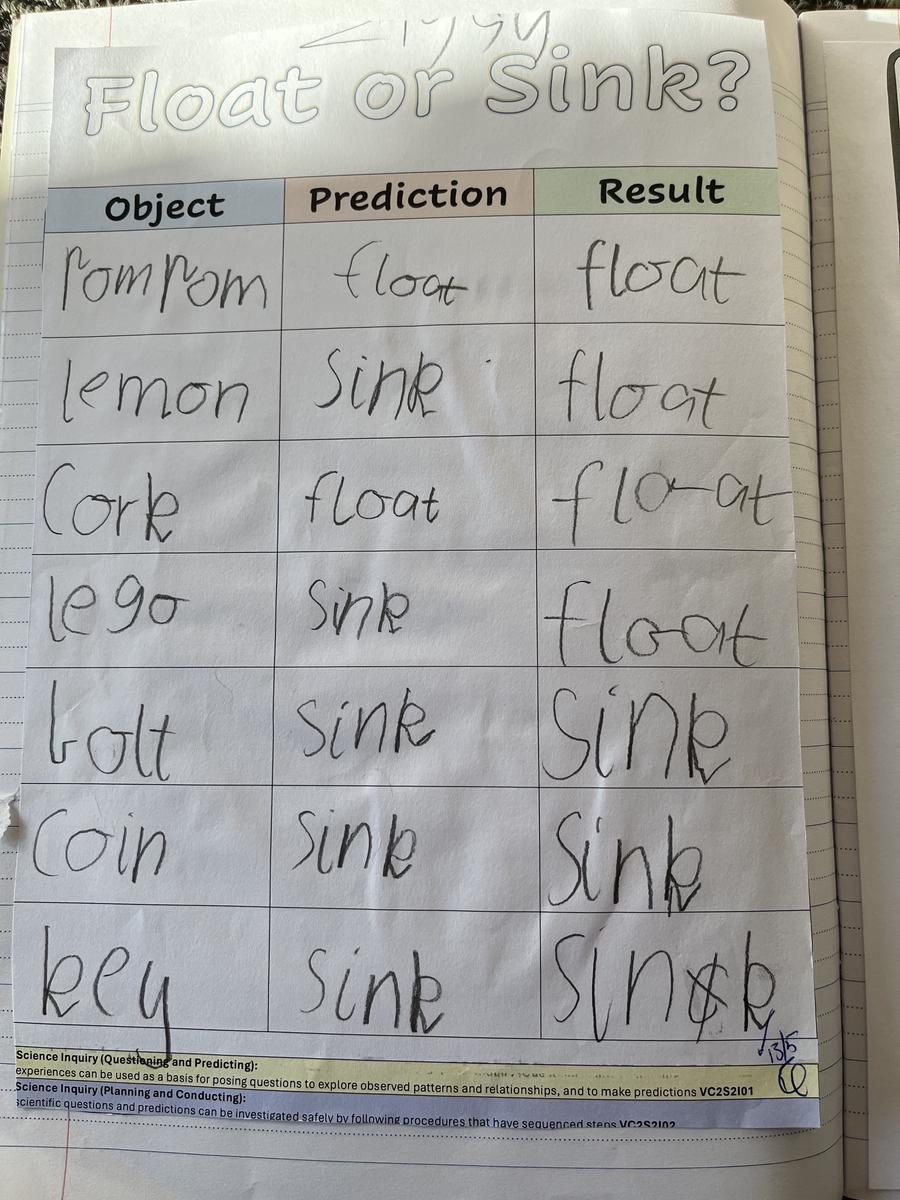 Ziggy
Float or Sink?
Object Prediction Result
Pompom float float
lemon Sink float
Cork float float
lego Sink float
bolt Sink Sink
Coin Sink Sink
key Sink Sink
13/5
Science Inquiry (Questioning and Predicting):
experiences can be used as a basis for posing questions to explore observed patterns and relationships, and to make predictions VC2S2I01
Science Inquiry (Planning and Conducting):
scientific questions and predictions can be investigated safely by following procedures that have sequenced steps VC2S2I02